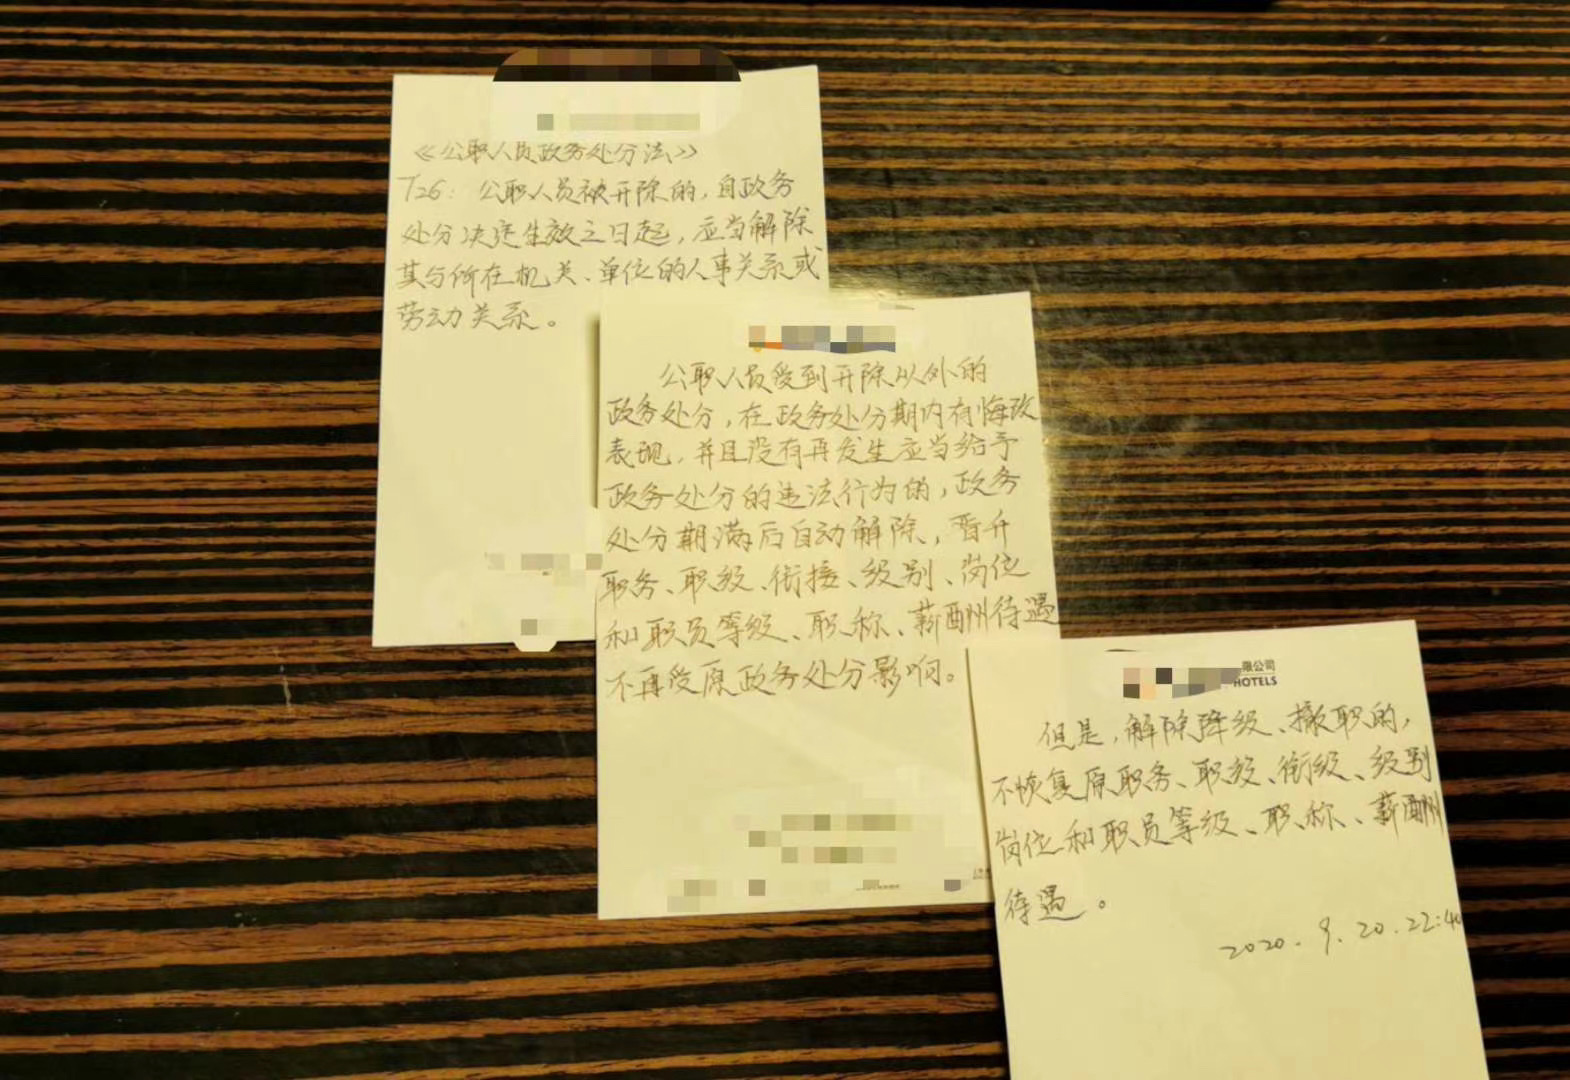 《公职人员政务处分法》
T26：公职人员被开除的，自政务
处分决定生效之日起，应当解除
其与所在机关、单位的人事关系或
劳动关系。
公职人员受到开除以外的
政务处分，在政务处分期内有悔改
表现，并且没有再发生应当给予
政务处分的违法行为的，政务
处分期满后自动解除，晋升
职务、职级、衔接、级别、岗位
和职员等级、职称、薪酬待遇
不再受原政务处分影响。
限公司
HOTELS
但是，解除降级、撤职的，
不恢复原职务、职级、衔级、级别
岗位和职员等级、职称、薪酬
待遇。
2020.9.20.22:40